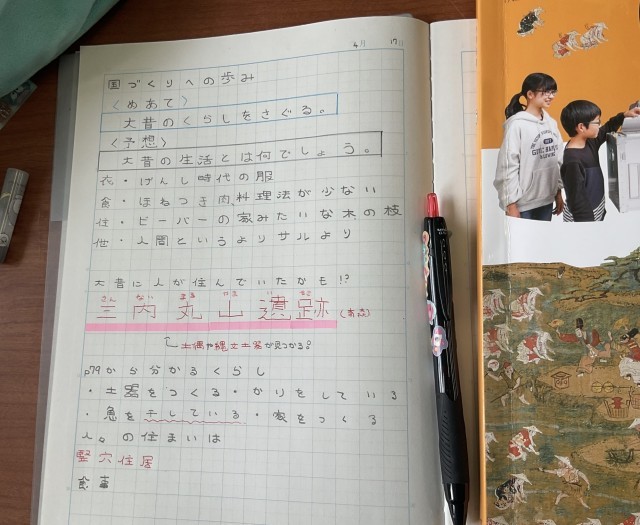 4/ 17/
国づくりへの歩み
〈めあて〉
大昔のくらしをさぐる。
〈予想〉
大昔の生活とは何でしょう。
衣・げんし時代の服
食・ほねつき肉、料理法が少ない
住・ビーバーの家みたいな木の枝
他・人間というよりサルより
大昔に人が住んでいたかも!?
さん ない まる やま い せき
三内丸山遺跡 (青森)
土偶や縄文土器が見つかる。
p79から分かるくらし
・土器をつくる・かりをしている
・魚を干している・家をつくる
人々の住まいは
竪穴住居
食事